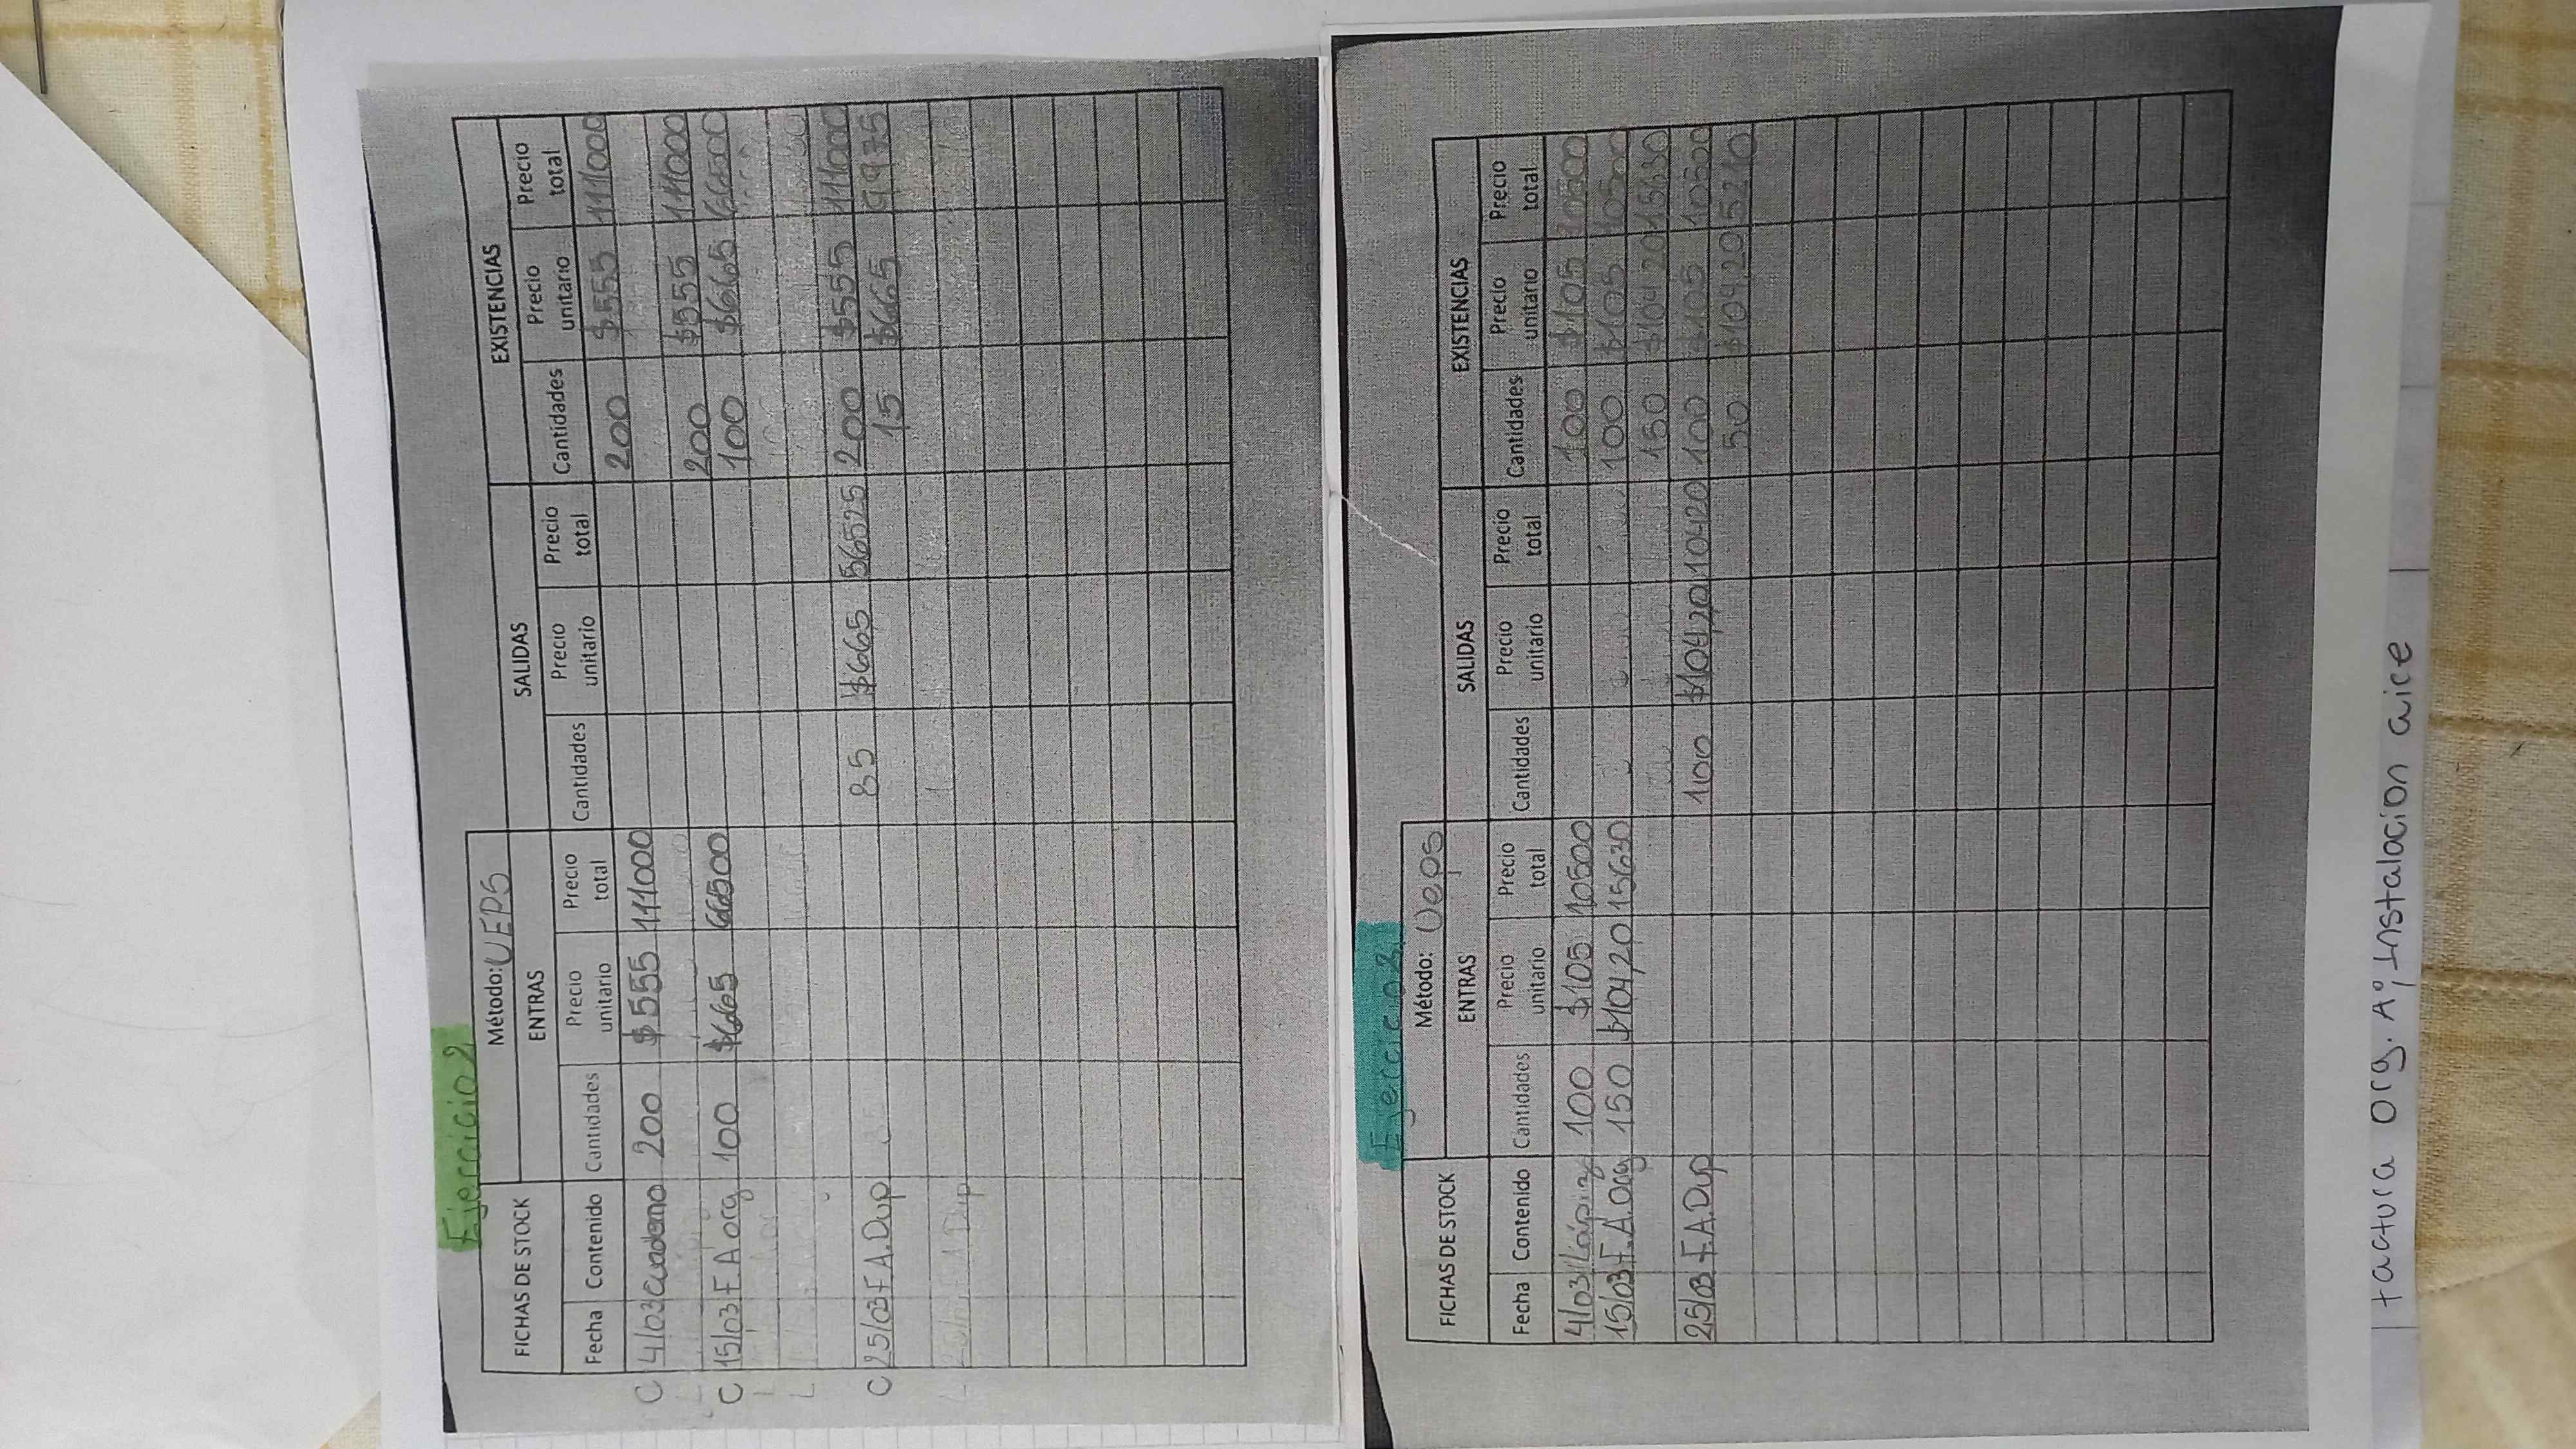 Ejercicio 2
FICHAS DE STOCK Método: UEPS
ENTRAS SALIDAS EXISTENCIAS
Fecha Contenido Cantidades Precio unitario Precio total Cantidades Precio unitario Precio total Cantidades Precio unitario Precio total
C 4/03 cuaderno 200 $555 111000 200 $555 111000
200 $555 111000
C 15/03 F A org 100 $665 66500 100 $665 66500
C 25/03 F.A.Dup 85 $665 56525 200 $555 111000
15 $665 9975
Ejercicio 2
FICHAS DE STOCK Método: Ueps
ENTRAS SALIDAS EXISTENCIAS
Fecha Contenido Cantidades Precio unitario Precio total Cantidades Precio unitario Precio total Cantidades Precio unitario Precio total
4/03 Lápiz 100 $105 10500 100 $105 10500
15/03 F.A.org 150 $104,20 15630 100 $105 10500
150 $104,20 15630
25/03 F.A.Dup 100 $104,20 10420 100 $105 10500
50 $104,20 5210
factura org. A°; Instalacion aire